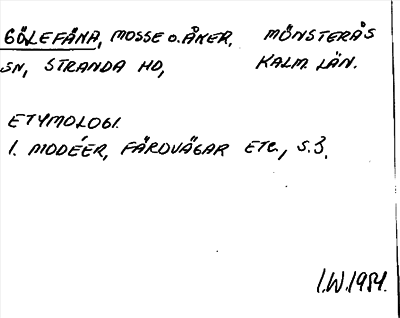 GÖLEFÅNA, MOSSE O. ÅKER, MÖNSTERÅS
SN, STRANDA HD, KALM. LÄN.
ETYMOLOGI.
I. MODÉER, FÄRDVÄGAR ETC., S. 3.
I.W. 1984.